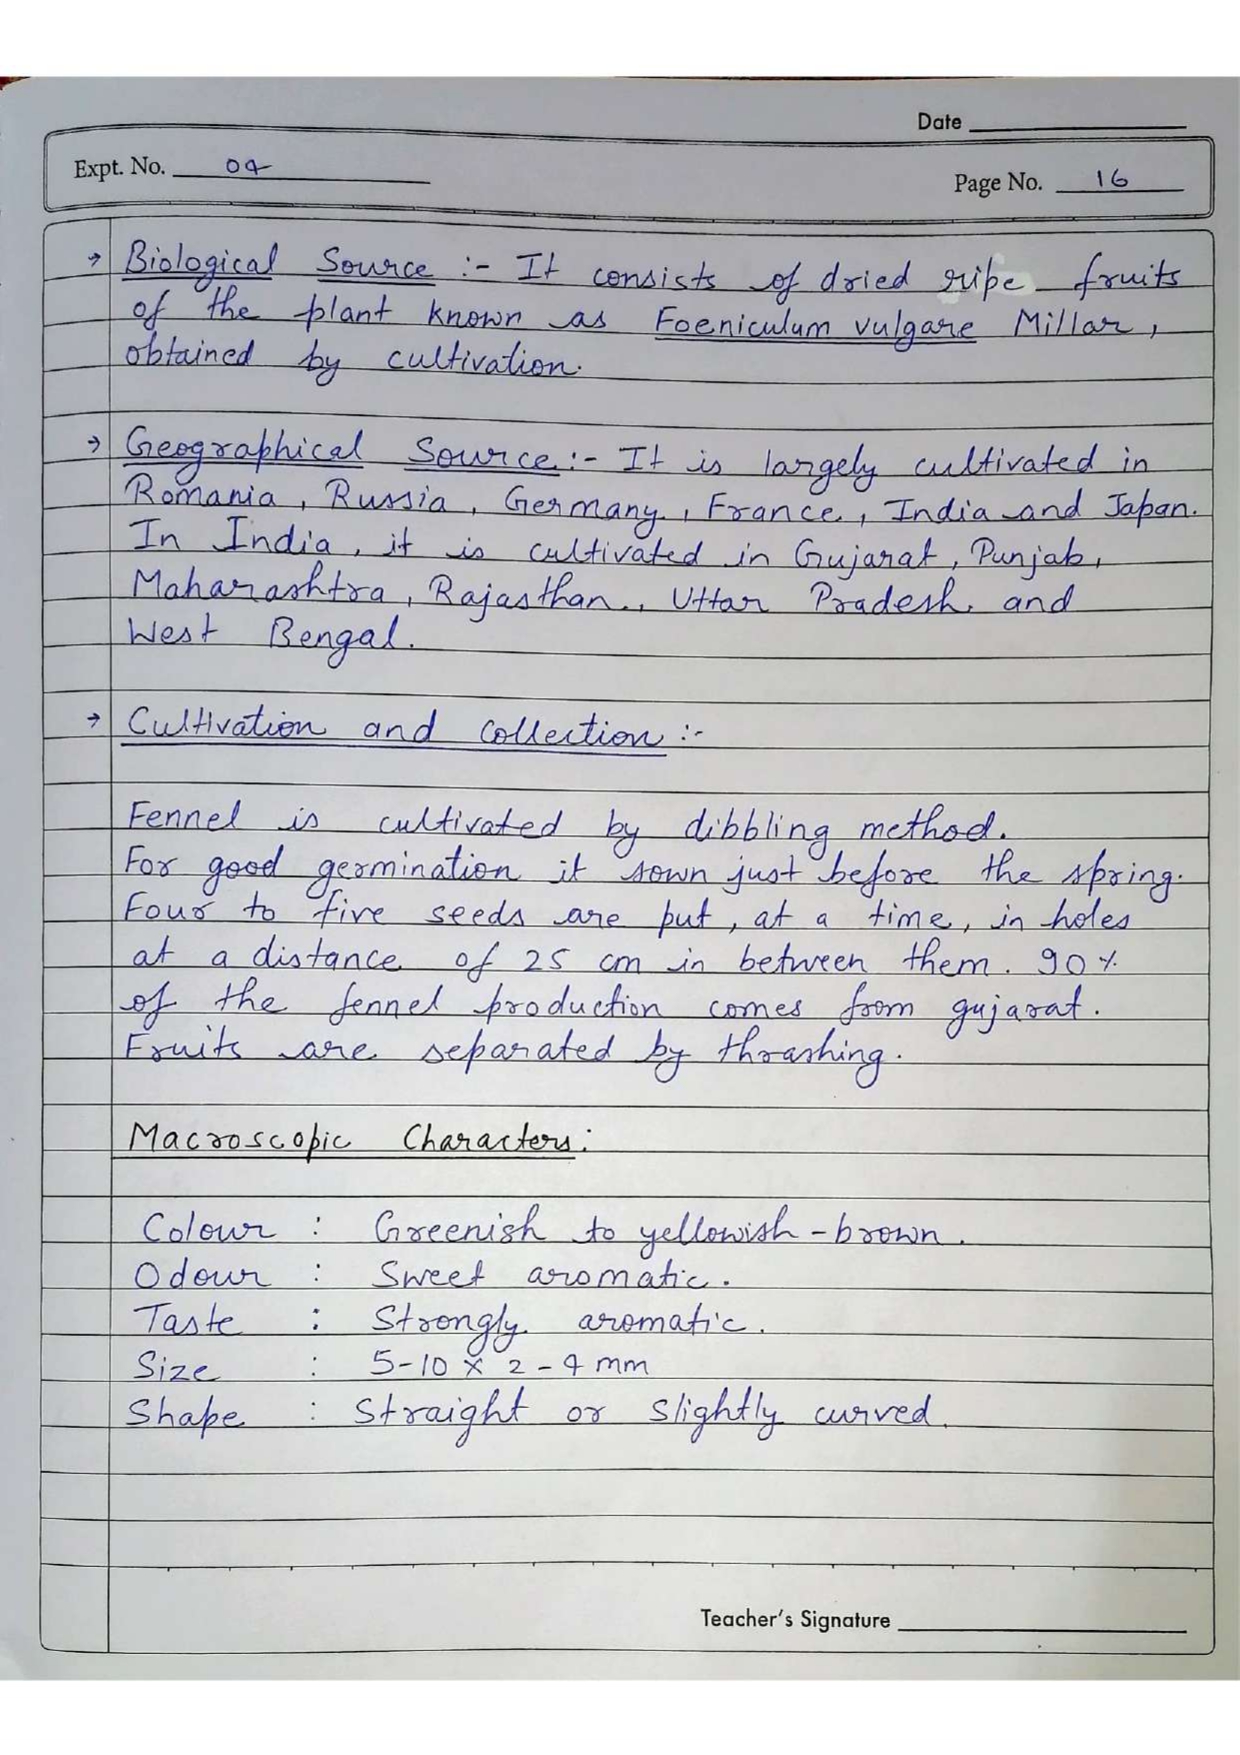 Date
Expt. No. 04
Page No. 16
→ Biological Source :- It consists of dried ripe fruits
of the plant known as Foeniculum vulgare Millar,
obtained by cultivation.
→ Geographical Source:- It is largely cultivated in
Romania, Russia, Germany, France, India and Japan.
In India, it is cultivated in Gujarat, Punjab,
Maharashtra, Rajasthan, Uttar Pradesh and
West Bengal.
→ Cultivation and collection :-
Fennel is cultivated by dibbling method.
For good germination it sown just before the spring.
Four to five seeds are put, at a time, in holes
at a distance of 25 cm in between them. 90%
of the fennel production comes from gujarat.
Fruits are separated by thrashing.
Macroscopic Characters:
Colour : Greenish to yellowish-brown.
Odour : Sweet aromatic.
Taste : Strongly aromatic.
Size : 5-10 x 2-4 mm
Shape : Straight or slightly curved.
Teacher's Signature